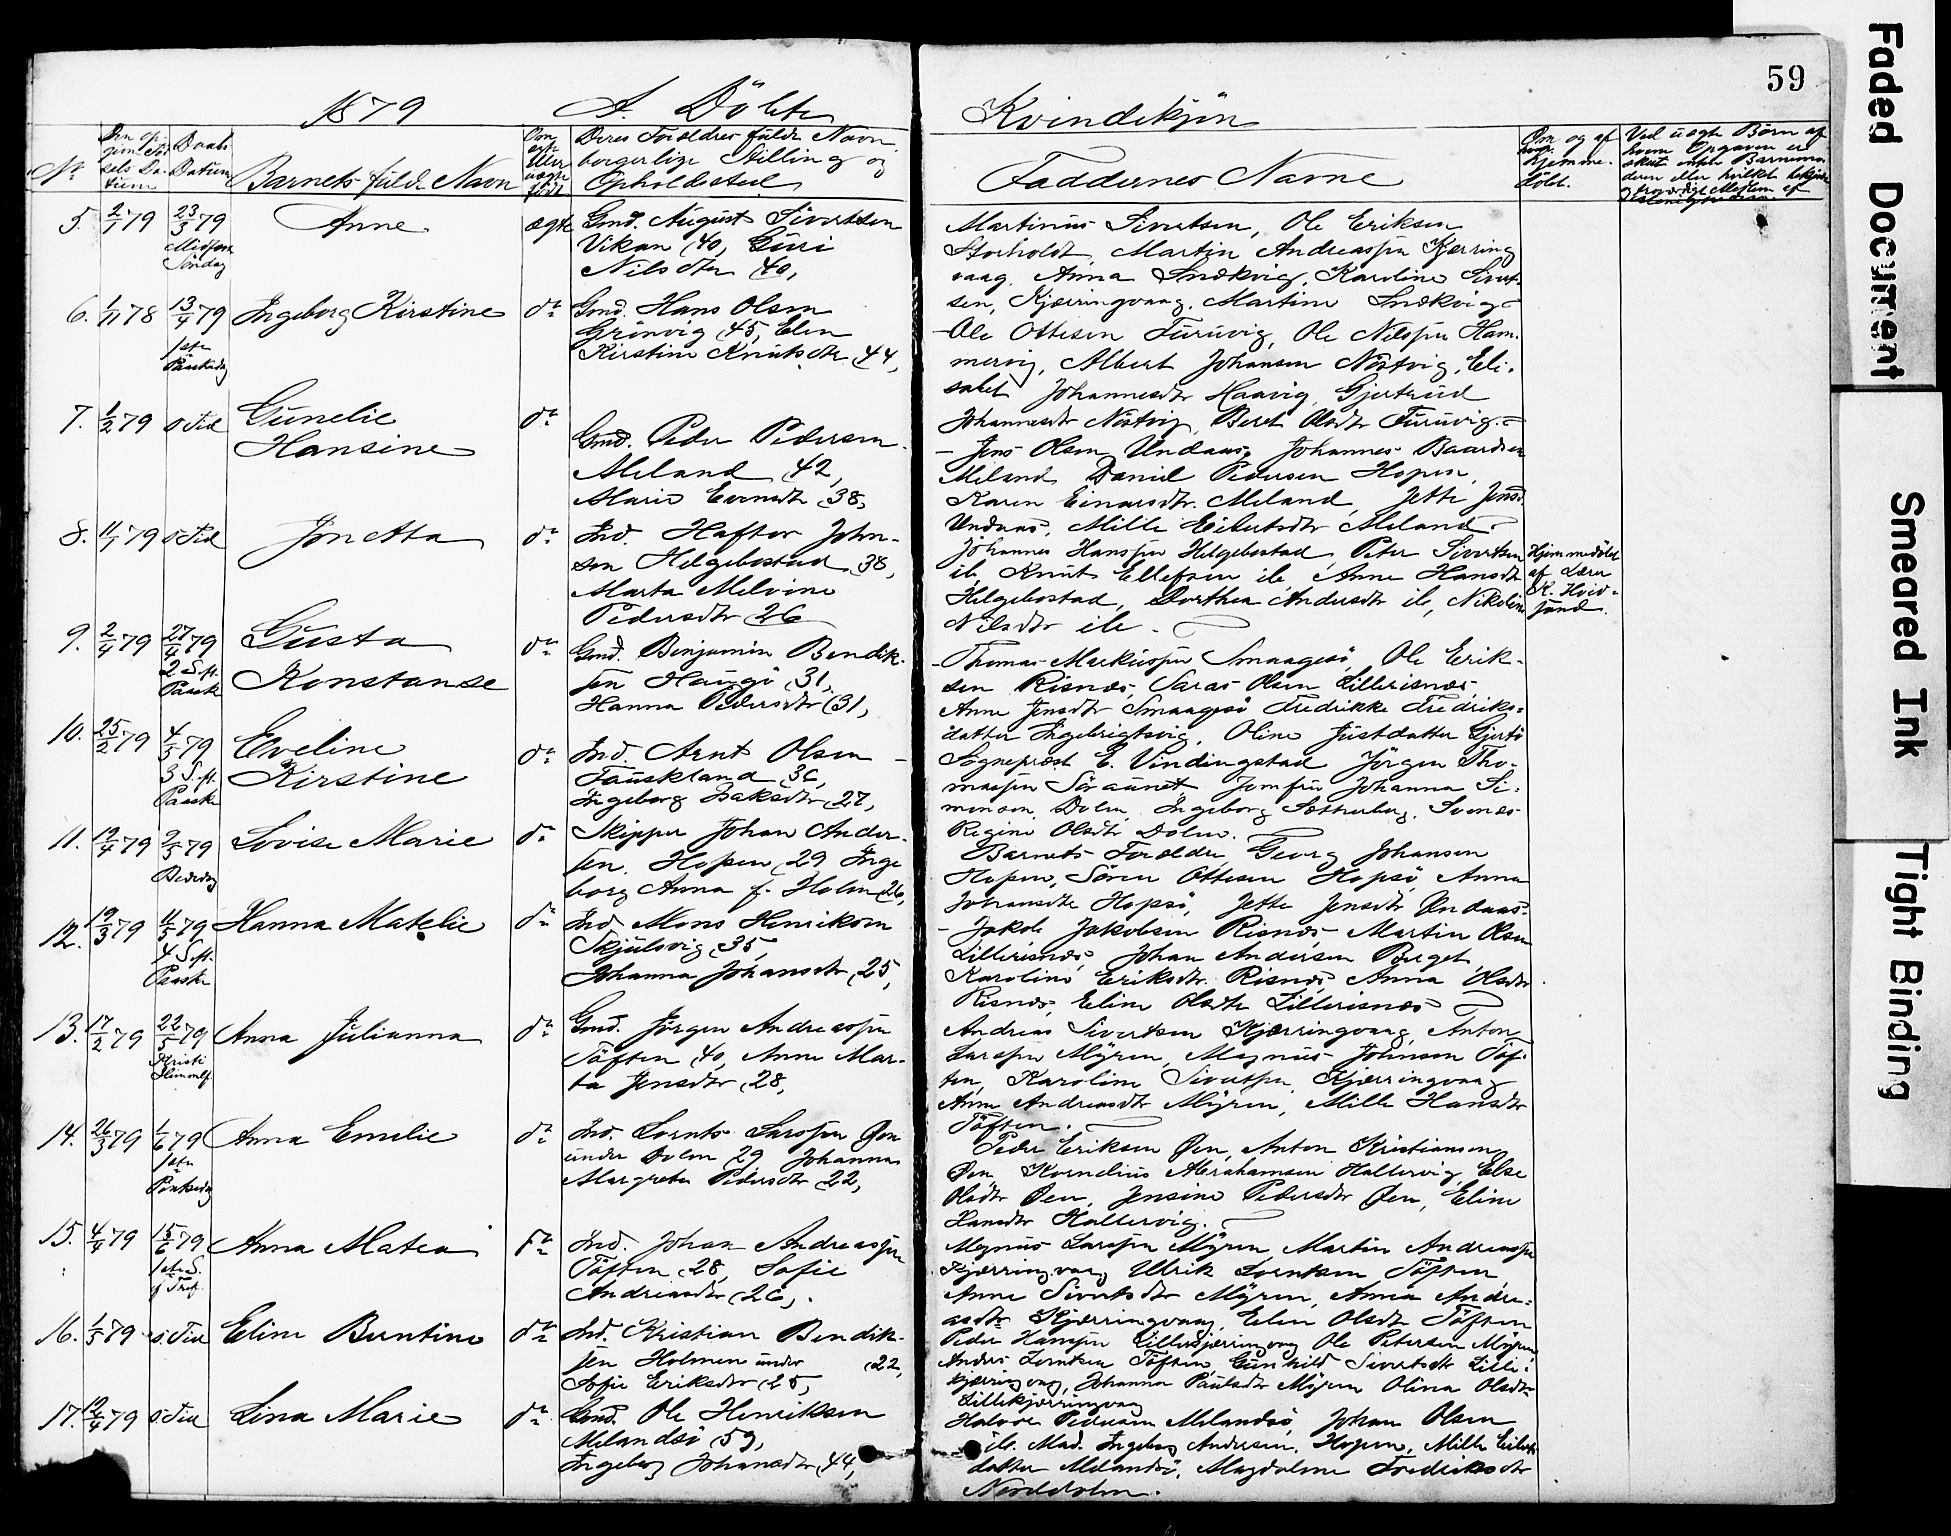 59
1879 A. Döbte Kvindekjön
Nr
Daabs Datum
Barnets fulde Navn
Deres Forældres fulde Navn,
borgerlige Stilling og
Opholdssted
Faddernes Navne
Om og af
hjemme-
döbt.
Ved uægte Börn af
hvem Opgaven er
5. 2/1 79 23/3 79 Anne ægte Gmd. August Sivertsen
Midfaste
Söndag
Vikan (40, Guri
Nilsdtr (40,
Martinus Sivertsen, Ole Eriksen
Storholdt, Martin Andreassen Kjerring
vaag, Anna Snekvig, Karoline Sivert-
sen, Kjærringvaag, Martine Snekvig
6. 1/11 78 13/4 79 Ingeborg Kirstine do Gmd. Hans Olsen
1ste
Paaskedag
Grönvig (45, Elen
Kirstine Knutsdtr (44,
Ole Ottesen Furuvig, Ole Nilssen Ham-
mervig, Albert Johansen Nöstvig, Eli-
sabet Johannesdtr Haavig, Gjertrud
Johannesdtr Nöstvig, Beret Olsdtr Furuvig.
7. 1/2 79 s Tid Gunelie
Hansine
do
Gmd. Peder Pedersen
Meland (42,
Marie Evensdtr (38,
Jens Olsen Undaas, Johannes Baardsen
Meland, Daniel Pedersen Hopen,
Karen Einarsdtr. Meland, Jette Jensd
Undaas, Mille Eilertsdtr Meland
8. 11/1 79 s Tid Jonetta do Ind. Haftor John-
sen Helgebostad (38,
Marta Melvine
Pedersdtr (26
Johannes Hanssen Helgebostad, Peter Sivertsen
ib, Knut Ellefsen ib, Anne Hansdtr
Helgebostad, Dorthea Andersdtr ib, Nikoline
Nilsdtr ib.
Hjemmedöbt
af Lærer
K. Hvid-
sand.
9. 2/4 79 27/4 79 Gusta
2 S. ft.
Paaske
Konstanse
do Gmd. Benjamin Bendik-
sen Haugö (31,
Hanna Pedersdtr (31,
Thomas Markussen Smaagesö, Ole Erik-
sen Risnæs, Laras Olsen Lillerisnæs,
Anne Jensdtr Smaagesö Fredrikke Fredriks-
datter Ingebrigtsvig, Oline Justdatter Gjertö
10. 25/2 79 4/5 79 Eveline
3 S. ft.
Paaske
Kirstine
do Ind. Arnt Olsen
Fauskland (36,
Ingeborg Isaksdtr (27,
Sognepræst E. Vindingstad Jörgen Tho-
massen Söraunet, Jomfru Johanna Si-
monsen, Dolm, Ingeborg Sætherberg, Svenes
Regine Olsdtr Dolm.
11. 12/4 79 9/5 79 Lovise Marie do Skipper Johan Ander-
Bededag
sen, Hopen (29 Inge
borg Anna f. Holm (26,
Barnets Forældre, Georg Johansen
Hopen, Sören Ottesen Hopsö, Anna
Johansdtr Hopsö, Jette Jensdtr Undaas
12. 19/3 79 11/5 79 Hanna Matelie do Ind Mons Henriksen
4 S. ft.
Paaske
Skjulsvig (35,
Johanna Johansdtr (25,
Jakob Jakobsen Risnæs, Martin Olsen
Lillerisnæs, Johan Andersen Berget
Karoline Eriksdtr. Risnæs, Anna Olsdtr
Risnæs, Eline Olsdtr Lillerisnæs
13. 17/2 79 22/5 79 Anna Julianna do Gmd. Jörgen Andreassen
Kristi
Himmelf.
Töften (40, Anne Mar-
ta Jensdtr (28,
Andreas Sivertsen Kjærringvaag, Anton
Larssen Myren, Magnus Johnsen Töf-
ten, Karoline Sivertsen, Kjærringvaag
Anne Andreasdtr Myren, Mille Hansdtr
Töften.
14. 26/3 79 1/6 79 Anna Emilie do Ind. Lornts Larssen Öen
1ste
Pintsedag
under Dolm 29 Johanna
Margrete Pedersdtr (22,
Peder Eriksen Öen, Anton Kristiansen
Öen, Kornelius Abrahamsen Hallervig, Else
Olsdtr Öen, Jensine Pedersdtr Öen, Eline
Hansdtr Hallervig.
15. 4/4 79 15/6 79 Anna Matea do Ind. Johan Andreassen
1ste S.
f. Tref.
Töften (28, Sofie
Andreasdtr (26,.
Magnus Larssen Myren, Martin Andreassen
Kjærringvaag Ulrik Lorntsen Töften
Anne Sivertsdtr Myren, Anna Andre-
asdtr Kjærringvaag, Elen Olsdtr Töften
16. 1/5 79 s. Tid Eline Berntine do Ind. Kristian Bendik-
sen Holmen under (22,
Sofie Eriksdtr (25,
Peder Hanssen Lillekjærringvaag Ole Petersen Myren
Anders Lorntsen Töften, Gunhild Sivertsdtr Lille-
kjærringvaag, Johanna Paulsdtr Myren Olina Olsdtr
Lillekjærringvaag
17. 12/4 79 s. Tid Lina Marie do Gmd. Ole Henriksen
Melandsö (59,
Ingeborg Johansdtr (44,
Halvor Pedersen Melandsö, Johan Olsen
ib. Mad. Ingeborg Andersen, Hopen, Mille Eilerts
datter Melandsö, Magdalene Fredriksdtr
Norddolm.
Faded Document
Smeared Ink
Tight Binding